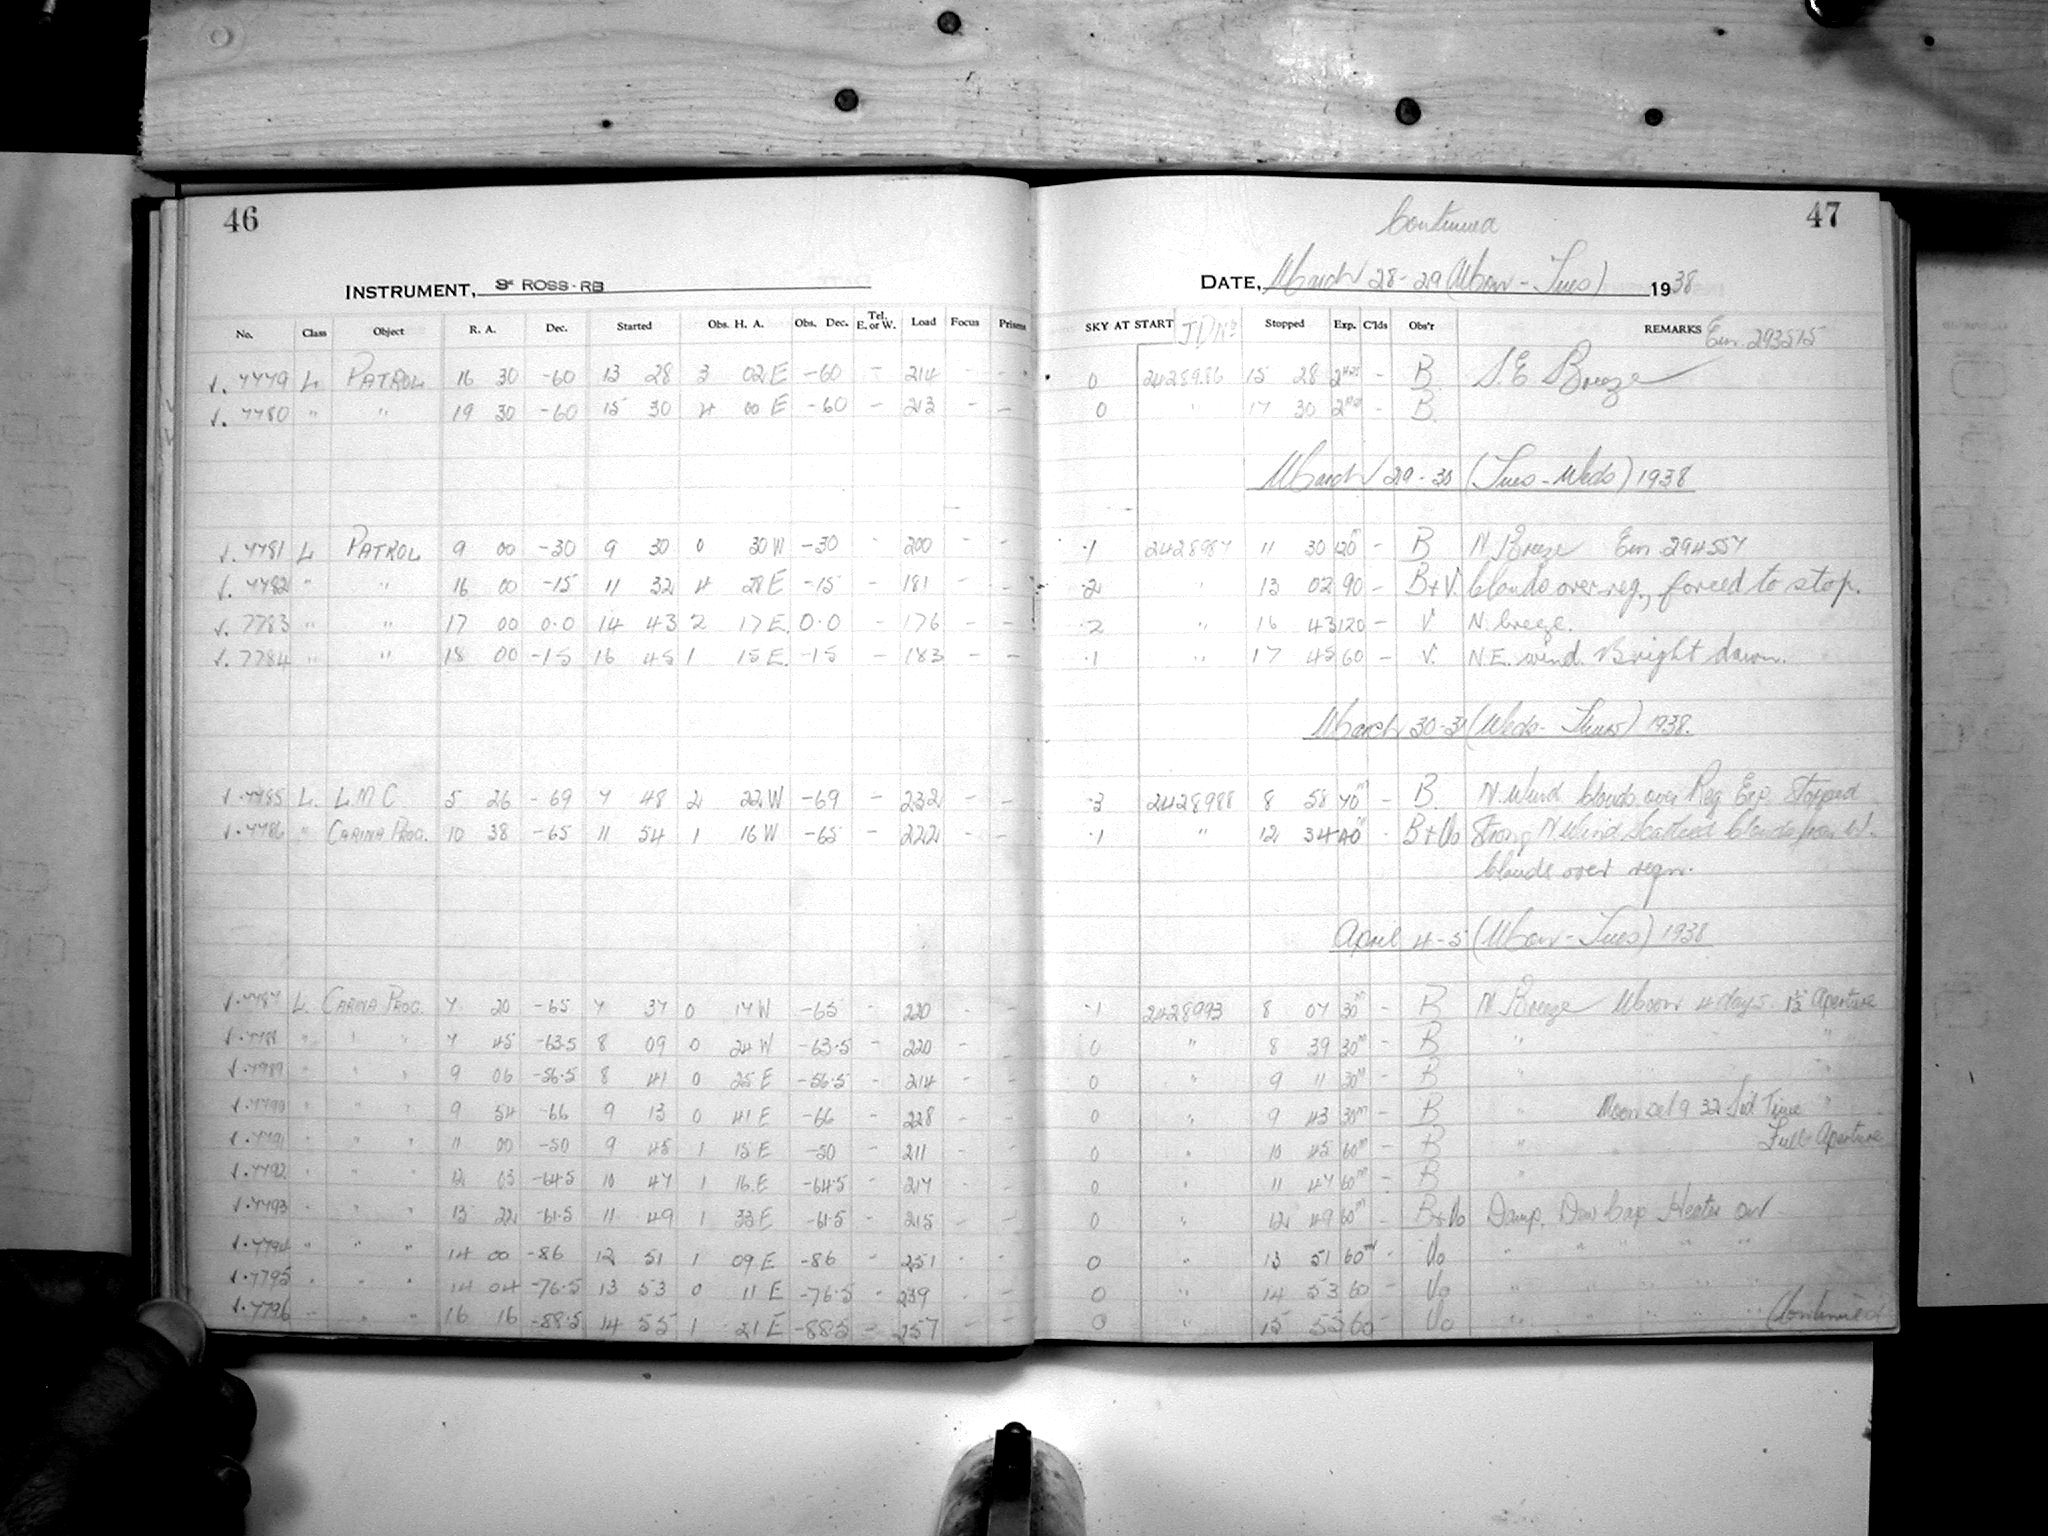 46
INSTRUMENT, 3" ROSS-RB
No. Class Object R. A. Dec. Started Obs. H. A. Obs. Dec. Tel. E. or W. Load Focus Prisms
√. 7779 L PATROL 16 30 -60 13 28 3 02 E -60 - 214 - -
√. 7780 " " 19 30 -60 15 30 4 00 E -60 - 213 - -
√. 7781 L PATROL 9 00 -30 9 30 0 30 W -30 - 200 - -
√. 7782 " " 16 00 -15 11 32 4 28 E -15 - 181 - -
√. 7783 " " 17 00 0.0 14 43 2 17 E. 0.0 - 176 - -
√. 7784 " " 18 00 -15 16 45 1 15 E. -15 - 183 - -
√. 7785 L. L M C 5 26 -69 7 48 2 22 W -69 - 232 - -
√. 7786 " CARINA PROG. 10 38 -65 11 54 1 16 W -65 - 222 - -
√. 7787 L. CARINA PROG. 7 20 -65 7 37 0 17 W -65 - 220 - -
√. 7788 " " " 7 45 -63.5 8 09 0 24 W -63.5 - 220 - -
√. 7789 " " " 9 06 -56.5 8 41 0 25 E -56.5 - 214 - -
√. 7790 " " " 9 54 -66 9 13 0 41 E -66 - 228 - -
√. 7791 " " " 11 00 -50 9 45 1 15 E -50 - 211 - -
√. 7792 " " " 12 03 -64.5 10 47 1 16 E -64.5 - 217 - -
√. 7793 " " " 13 22 -61.5 11 49 1 33 E -61.5 - 215 - -
√. 7794 " " " 14 00 -86 12 51 1 09 E -86 - 251 - -
√. 7795 " " " 14 04 -76.5 13 53 0 11 E -76.5 - 239 - -
√. 7796 " " " 16 16 -88.5 14 55 1 21 E -88.5 - 257 - -
Continued
47
DATE, March 28-29 (Mon-Tues) 1938
SKY AT START JD No Stopped Exp. C'lds Obs'r REMARKS Em. 293515
0 2428986 15 28 2 hrs - B. S.E Breeze
0 " 17 30 2 hrs - B.
March 29-30 (Tues-Weds) 1938
.1 2428987 11 30 120m - B N Breeze Em 294557
.2 " 13 02 90 - B+V. Clouds over reg., forced to stop.
.2 " 16 43 120 - V. N. breeze.
.1 " 17 45 60 - V. N.E. wind. Bright dawn.
March 30-31 (Weds-Thurs) 1938.
.3 2428988 8 58 70m - B. N. Wind Clouds over Reg Exp Stopped
.1 " 12 34 40m - B+Vo Strong N Wind Scattered Clouds from W.
Clouds over regn.
April 4-5 (Mon-Tues) 1938
.1 2428993 8 07 30m - B N Breeze Moon 4 days. 1½ Aperture
0 " 8 39 30m - B " " "
0 " 9 11 30m - B " " "
0 " 9 43 30m - B " Moon set 9 32 Sid Time "
0 " 10 45 60m - B " Full Aperture
0 " 11 47 60m - B "
0 " 12 49 60m - B+Vo Damp. Dew Cap Heater on
0 " 13 51 60m - Vo " " " " "
0 " 14 53 60 - Vo " " " " "
0 " 15 55 60 - Vo " " " " " Continued